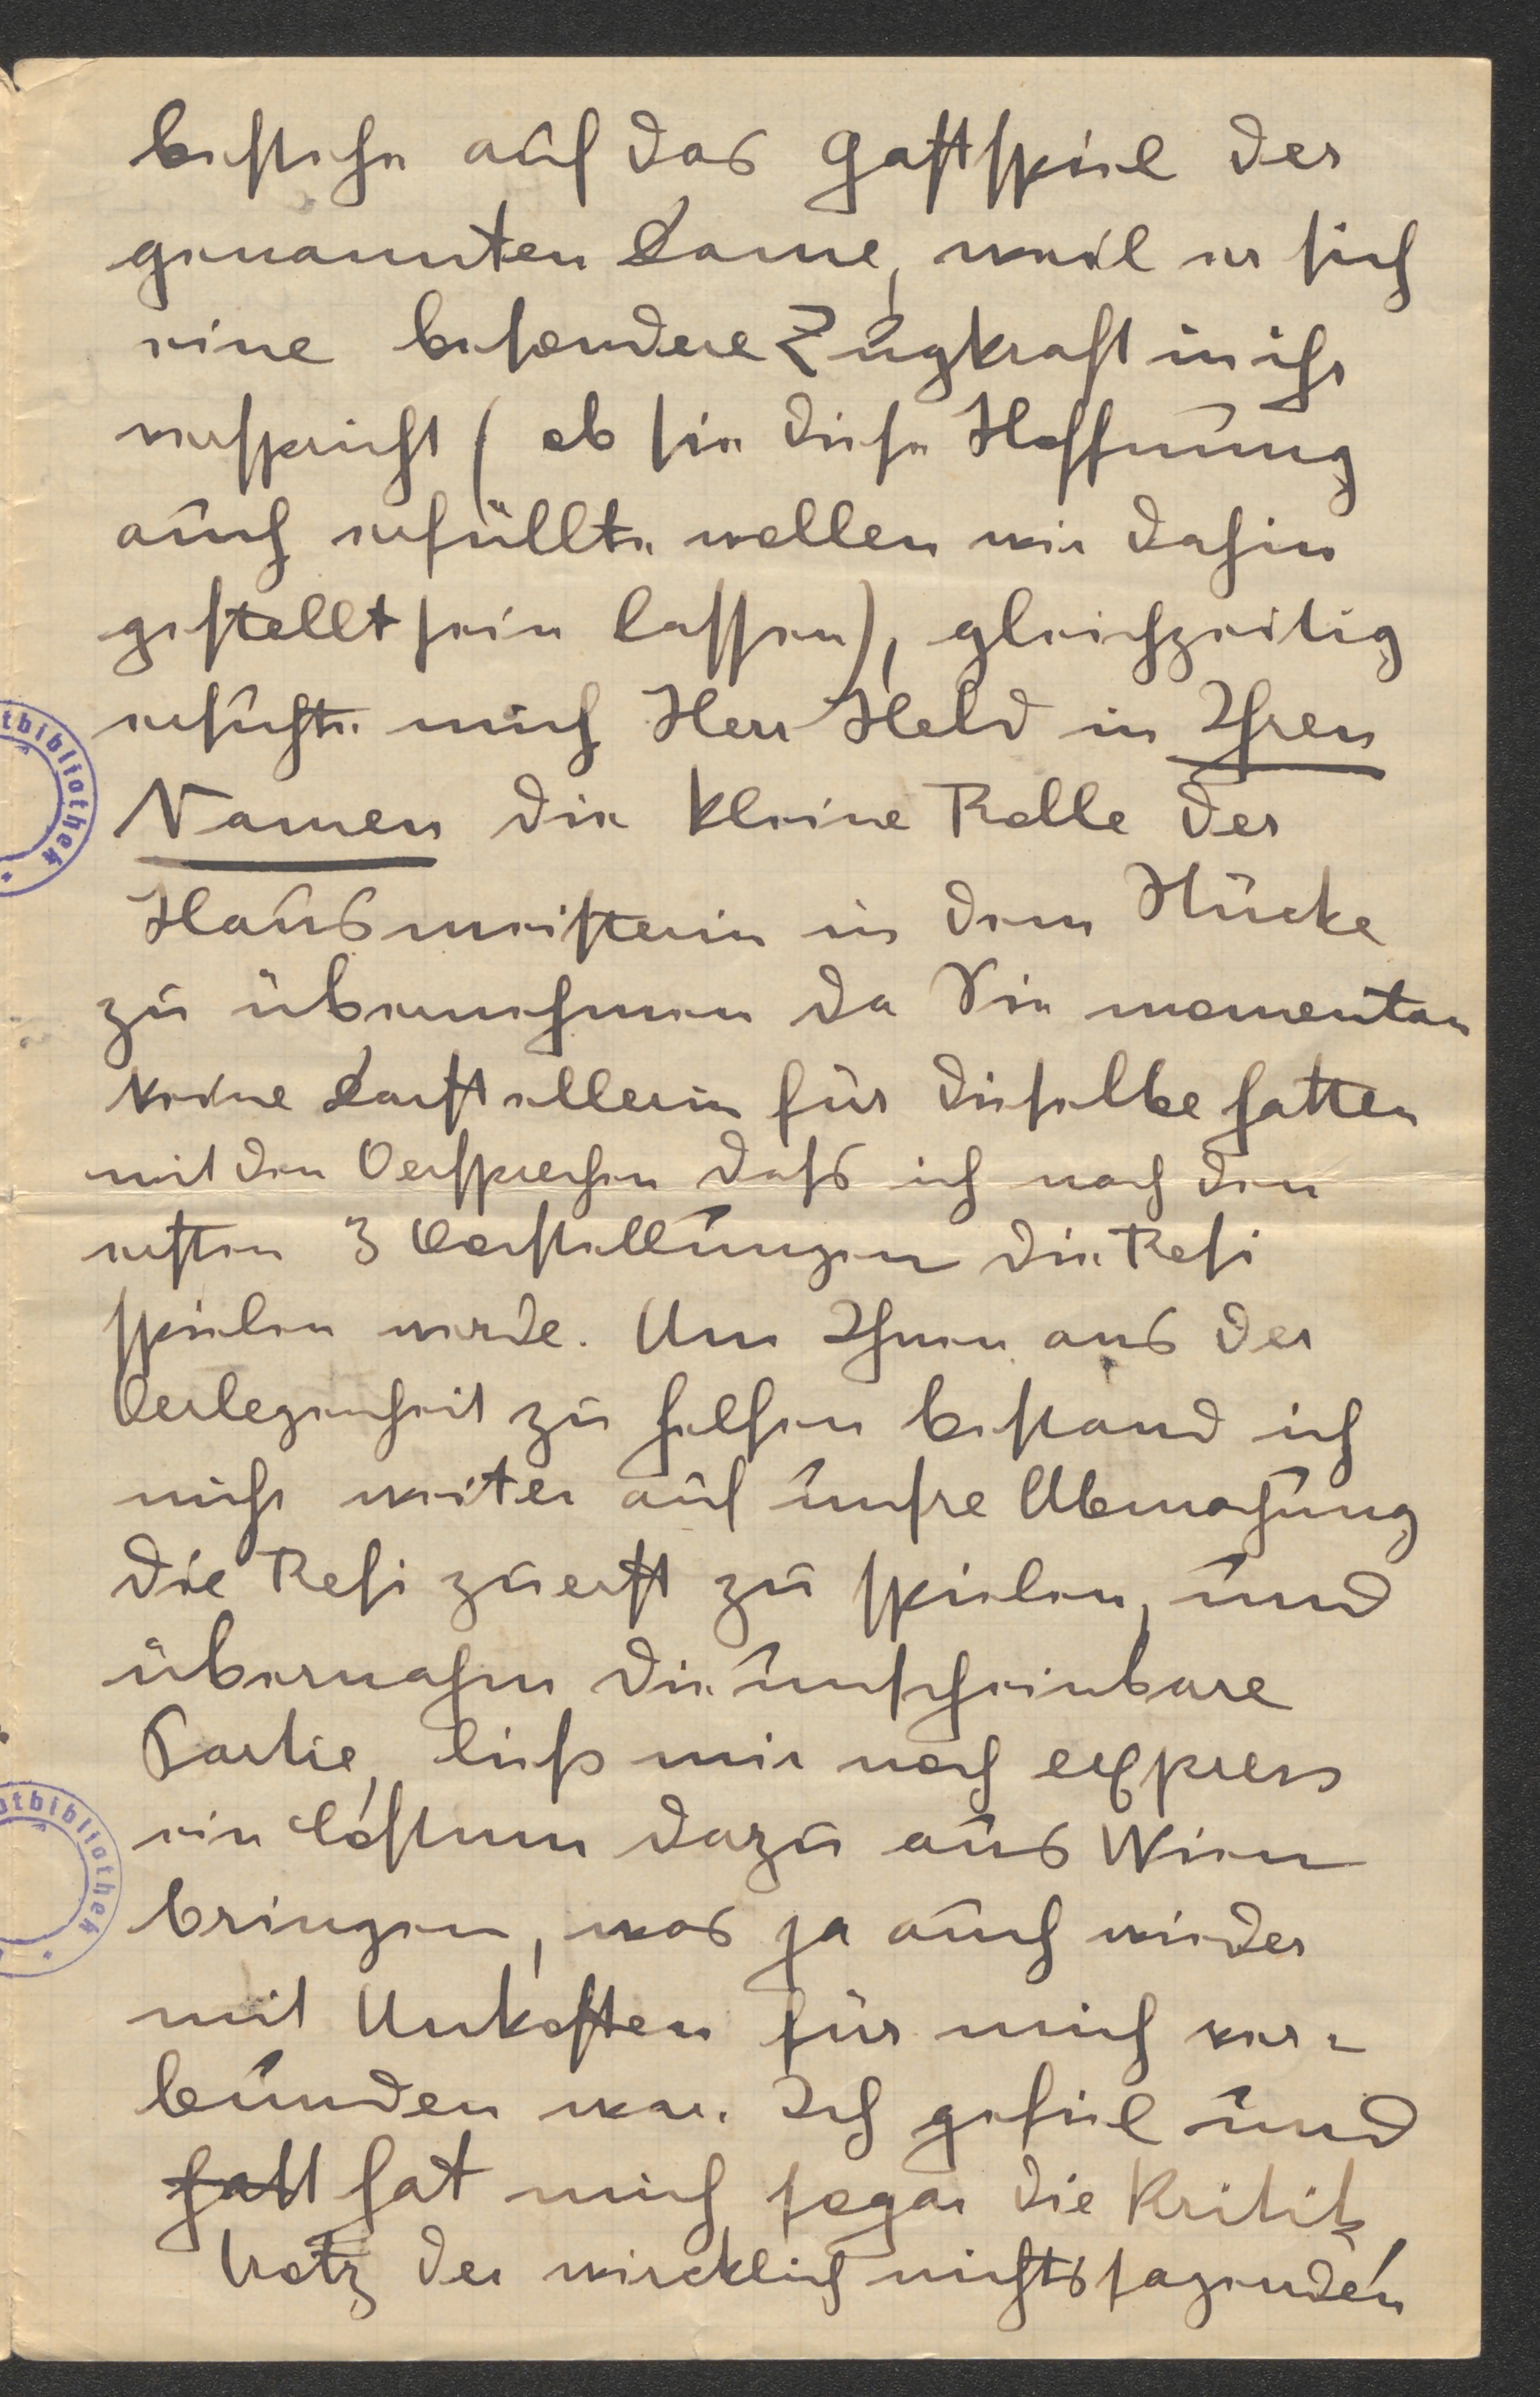 bestehe auf das Gastspiel der
genannten Dame, weil er sich
eine besondere Zugkraft in ihr
verspricht (ob sie diese Hoffnung
auch erfüllte wollen wir dahin
gestellt sein lassen), gleichzeitig
ersuchte mich Herr Held in Ihren
Namen die kleine Rolle der
Hausmeisterin in dem Stücke
zu übernehmen da Sie momentan
keine Darstellerin für dieselbe hatten
mit den Versprechen dass ich nach den
ersten 3 Vorstellungen die Resi
spielen werde. Um Ihnen aus der
Verlegenheit zu helfen bestand ich
nicht weiter auf unsre Abmachung
die Resi zuerst zu spielen, und
übernahm die unscheinbare
Partie, liess mir noch express
ein Costum dazu aus Wien
bringen, was ja auch wieder
mit Unkosten für mich ver-
bunden war. Ich gefiel und
hatt hat mich sogar die Kritik,
trotz der wircklich nichtssagenden
otbibliothek
otbibliothek